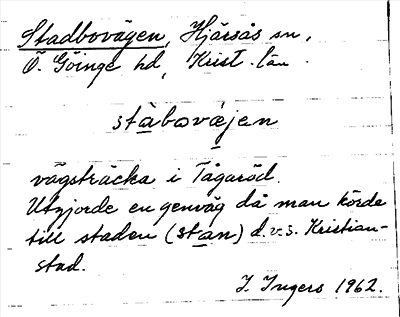 Stadbovägen, Hjärsås sn,
Ö. Göinge hd, Krist. län
stàbovæ̀jen
vägsträcka i Tågaröd.
Utgjorde en genväg då man körde
till staden (stan) d.v.s. Kristian-
stad.
I. Ingers 1962.